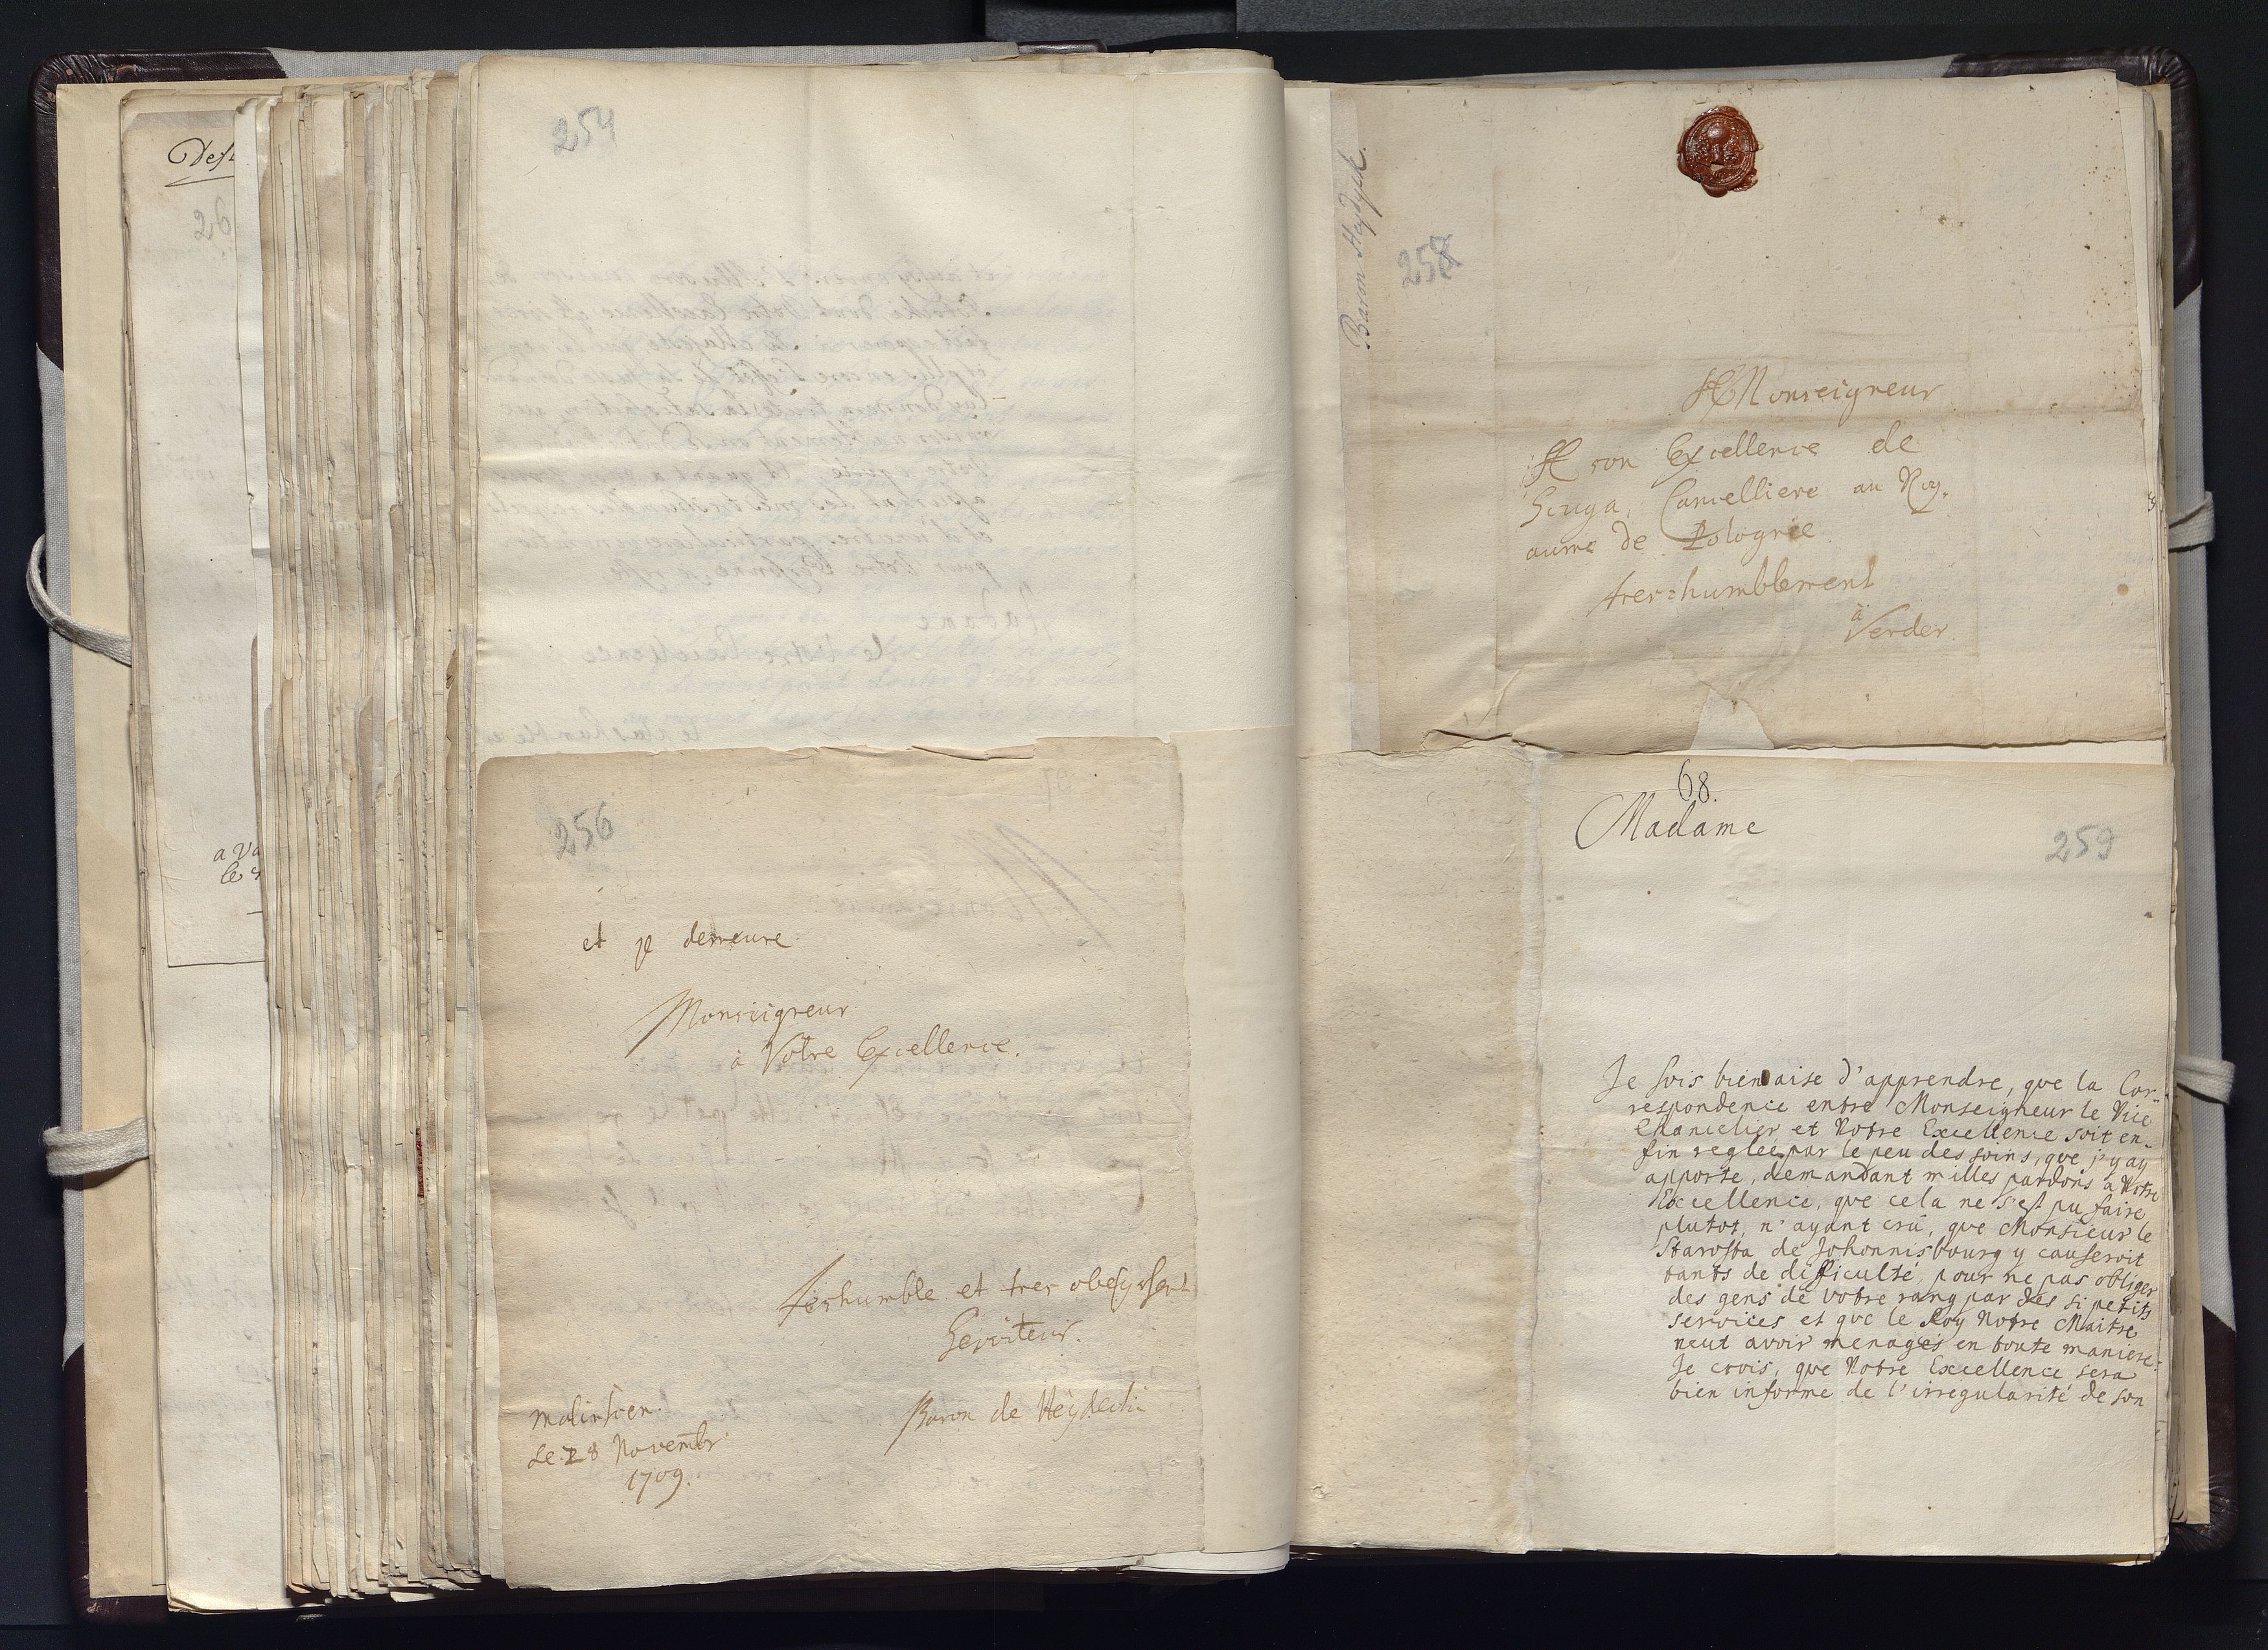 254
256
et je demeure
Monseigneur
à Votre Excellence.
treshumble et tres obeÿssent
Serviteur.
Baron de Heÿdech
le 28 Novembr
1709.
26
a Va
le
Baron Heydeck.
258
A Monseigneur
A son Excellence de
Cancelliere au Roy-
aume de Pologne
tres=humblement
à
Verder.
68.
Madame
259
Je suis bien aise d'apprendre, que la Cor-
respondence entre Monseigneur le Vice
Chancelier et Votre Excellence soit en-
fin reglée par le peu des soins, que j'y ay
apporte, demandant milles pardons a Votre
Excellence, que cela ne s'est pu faire
plutot, n'ayant crû, que Monsieur le
Starosta de Johonnisbourg y causeroit
tants de difficulté, pour ne pas obliger
des gens de votre rang par des si petits
services et que le Roy Notre Maitre
veut avoir menagés en toute maniere.
Je crois, que Votre Excellence sera
bien informe de l'irregularité de son